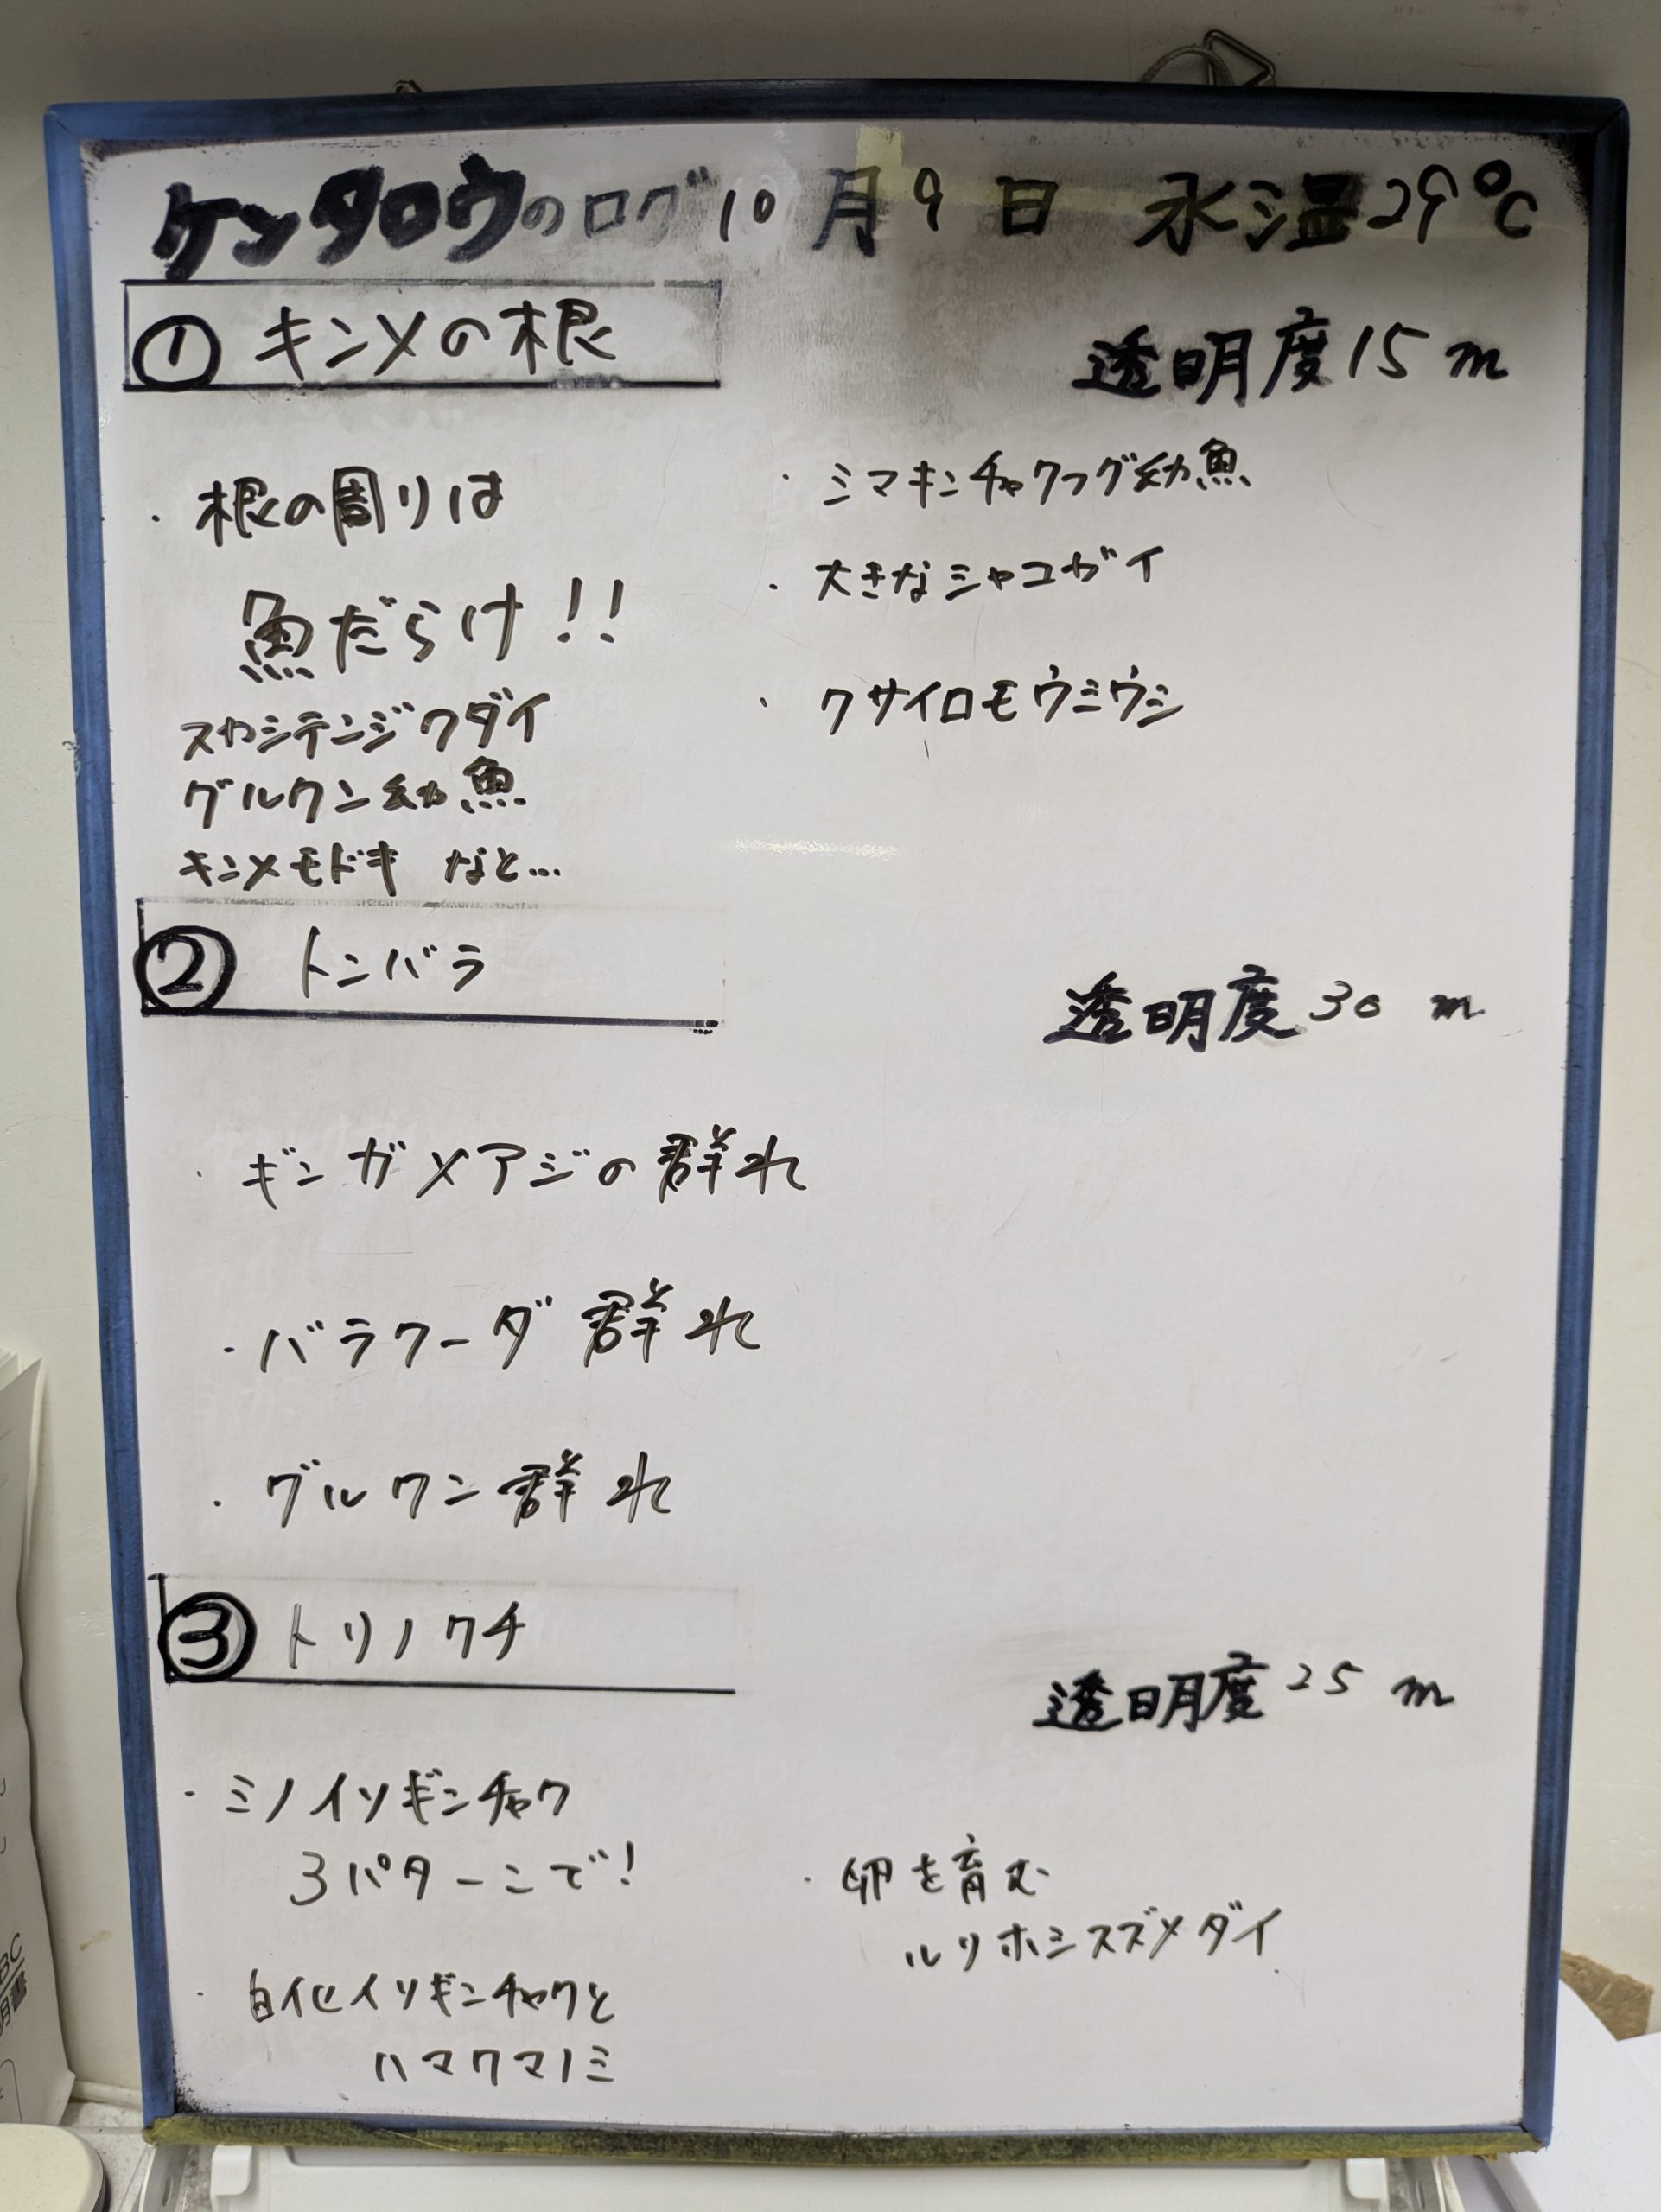 ケンタロウのログ 10月9日 水温29℃
① キンメの根
透明度15m
・根の周りは
魚だらけ!!
スカシテンジクダイ
グルクン幼魚
キンメモドキ など...
・シマキンチャクフグ幼魚
・大きなシャコガイ
・クサイロモウミウシ
② トンバラ
透明度30m
・ギンガメアジの群れ
・バラクーダ群れ
・グルクン群れ
③ トリノクチ
透明度25m
・ミノイソギンチャク
3パターンで!
・白化イソギンチャクと
ハマクマノミ
・卵を育む
ルリホシスズメダイ
BC